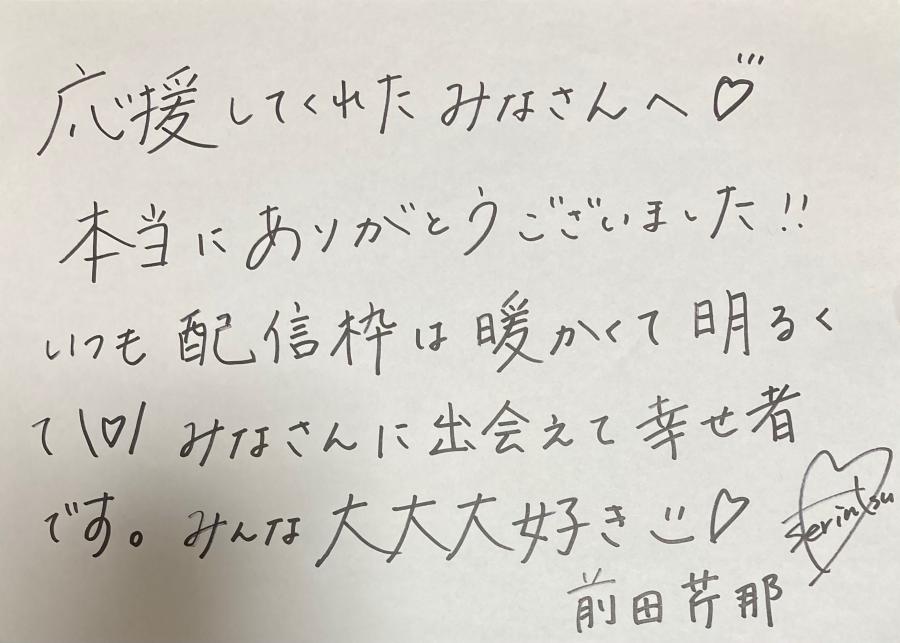 応援してくれたみなさんへ♡
本当にありがとうございました!!
いつも配信枠は暖かくて明るく
て\♡/ みなさんに出会えて幸せ者
です。みんな大大大好き ♡
Serintsu
前田芹那